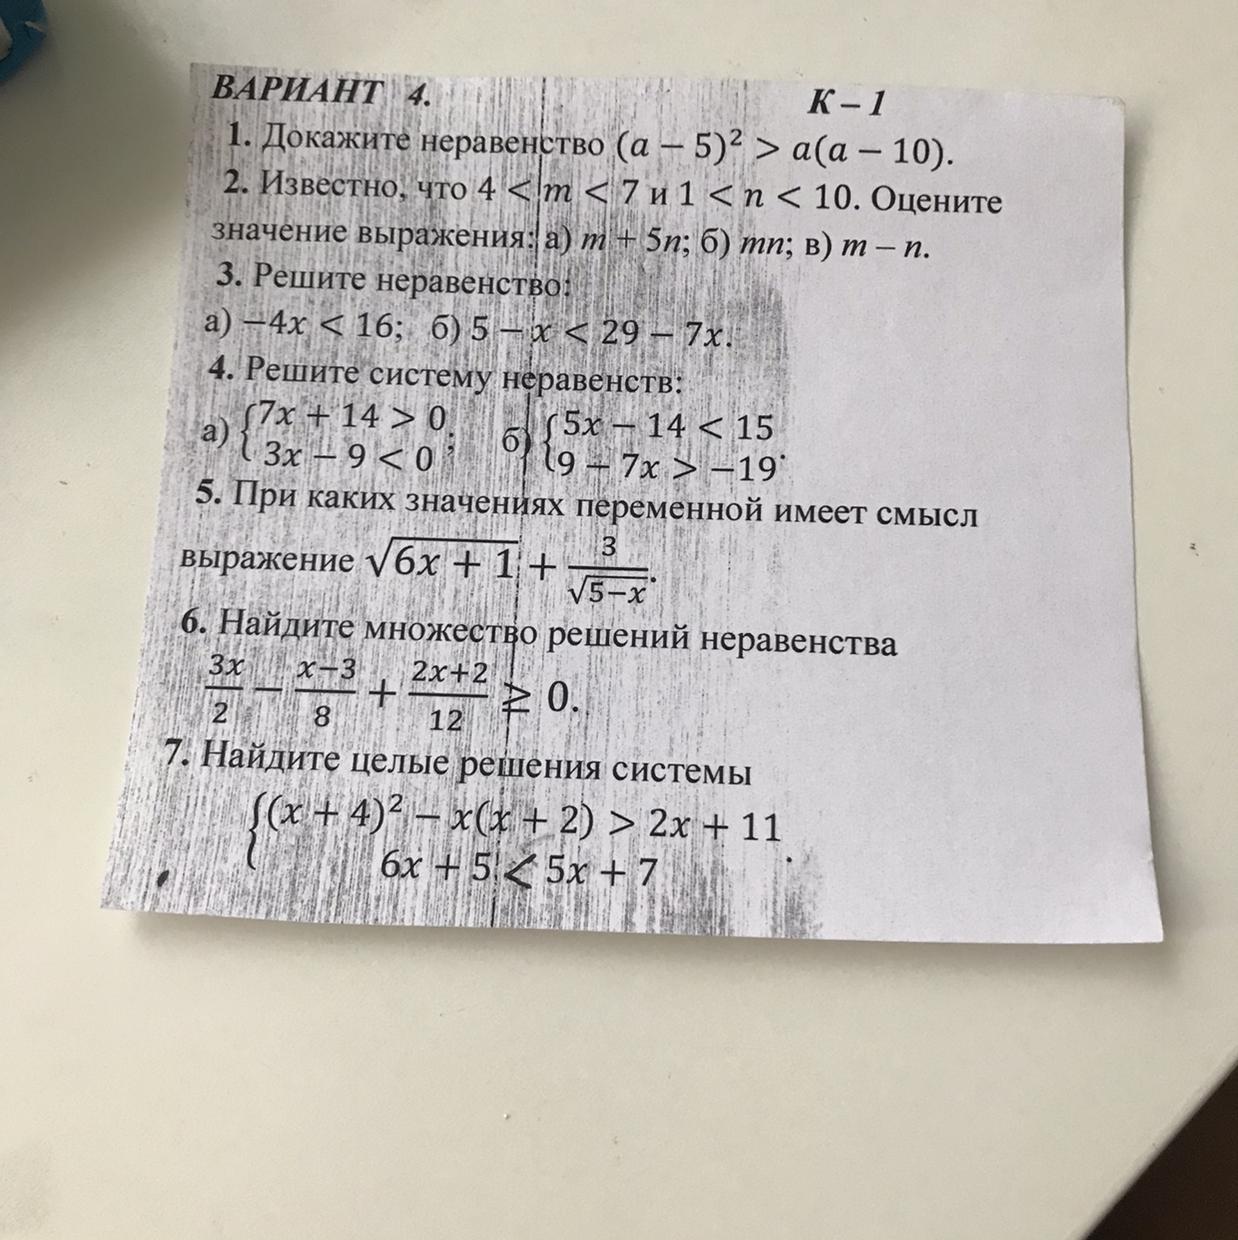 ВАРИАНТ 4. К – 1
1. Докажите неравенство (a − 5)² > a(a − 10).
2. Известно, что 4 < m < 7 и 1 < n < 10. Оцените
значение выражения: а) m + 5n; б) mn; в) m – n.
3. Решите неравенство:
а) −4x < 16; б) 5 − x < 29 − 7x.
4. Решите систему неравенств:
а) {7x + 14 > 0; б) {5x − 14 < 15
3x − 9 < 0 9 − 7x > −19.
5. При каких значениях переменной имеет смысл
выражение √(6x + 1) + 3/√(5−x).
6. Найдите множество решений неравенства
3x/2 − (x−3)/8 + (2x+2)/12 ≥ 0.
7. Найдите целые решения системы
{(x + 4)² − x(x + 2) > 2x + 11.
6x + 5 < 5x + 7